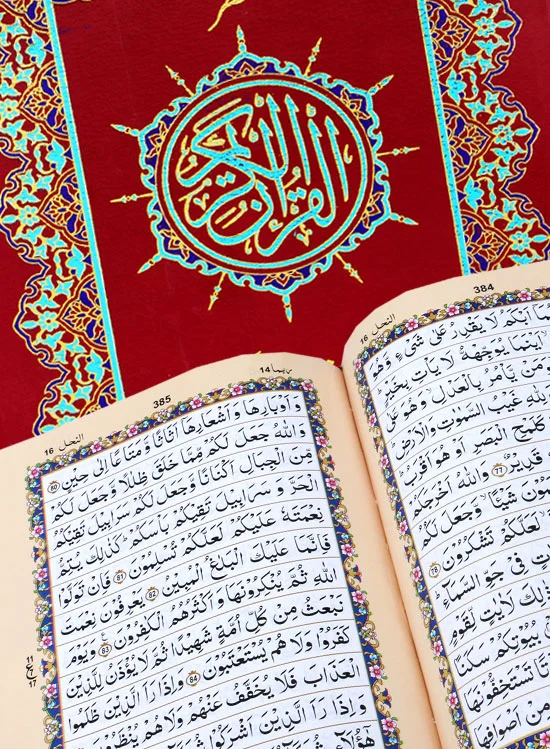 القرآن الكريم
384
النحل 16
اَبْكَمُ لَا يَقْدِرُ عَلٰى شَىْءٍ وَّهُوَ
اَيْنَمَا يُوَجِّهْهُّ لَا يَاْتِ بِخَيْرٍ
مَنْ يَّاْمُرُ بِالْعَدْلِ وَهُوَ عَلٰى
غَيْبُ السَّمٰوٰتِ وَالْاَرْضِ
كَلَمْحِ الْبَصَرِ اَوْ هُوَ اَقْرَبُ
قَدِيْرٌ 77 وَاللّٰهُ اَخْرَجَكُمْ
شَيْئًا وَّجَعَلَ لَكُمُ
لَعَلَّكُمْ تَشْكُرُوْنَ 78
فِىْ جَوِّ السَّمَآءِ
لَاٰيٰتٍ لِّقَوْمٍ
بُيُوْتِكُمْ سَكَنًا
تَسْتَخِفُّوْنَهَا
مِنْ اَصْوَافِهَا
ربما 14
385
النحل 16
وَاَوْبَارِهَا وَاَشْعَارِهَا اَثَاثًا وَّمَتَاعًا اِلٰى حِيْنٍ 80
وَاللّٰهُ جَعَلَ لَكُمْ مِّمَّا خَلَقَ ظِلٰلًا وَّجَعَلَ لَكُمْ
مِّنَ الْجِبَالِ اَكْنَانًا وَّجَعَلَ لَكُمْ سَرَابِيْلَ تَقِيْكُمُ
الْحَرَّ وَسَرَابِيْلَ تَقِيْكُمْ بَاْسَكُمْ كَذٰلِكَ يُتِمُّ
نِعْمَتَهٗ عَلَيْكُمْ لَعَلَّكُمْ تُسْلِمُوْنَ 81 فَاِنْ تَوَلَّوْا
فَاِنَّمَا عَلَيْكَ الْبَلٰغُ الْمُبِيْنُ 82 يَعْرِفُوْنَ نِعْمَتَ
اللّٰهِ ثُمَّ يُنْكِرُوْنَهَا وَاَكْثَرُهُمُ الْكٰفِرُوْنَ 83 وَيَوْمَ
نَبْعَثُ مِنْ كُلِّ اُمَّةٍ شَهِيْدًا ثُمَّ لَا يُؤْذَنُ لِلَّذِيْنَ
كَفَرُوْا وَلَا هُمْ يُسْتَعْتَبُوْنَ 84 وَاِذَا رَاَ الَّذِيْنَ ظَلَمُوا
الْعَذَابَ فَلَا يُخَفَّفُ عَنْهُمْ وَلَا هُمْ يُنْظَرُوْنَ
وَاِذَا رَاَ الَّذِيْنَ اَشْرَكُوْا
11
ع
17